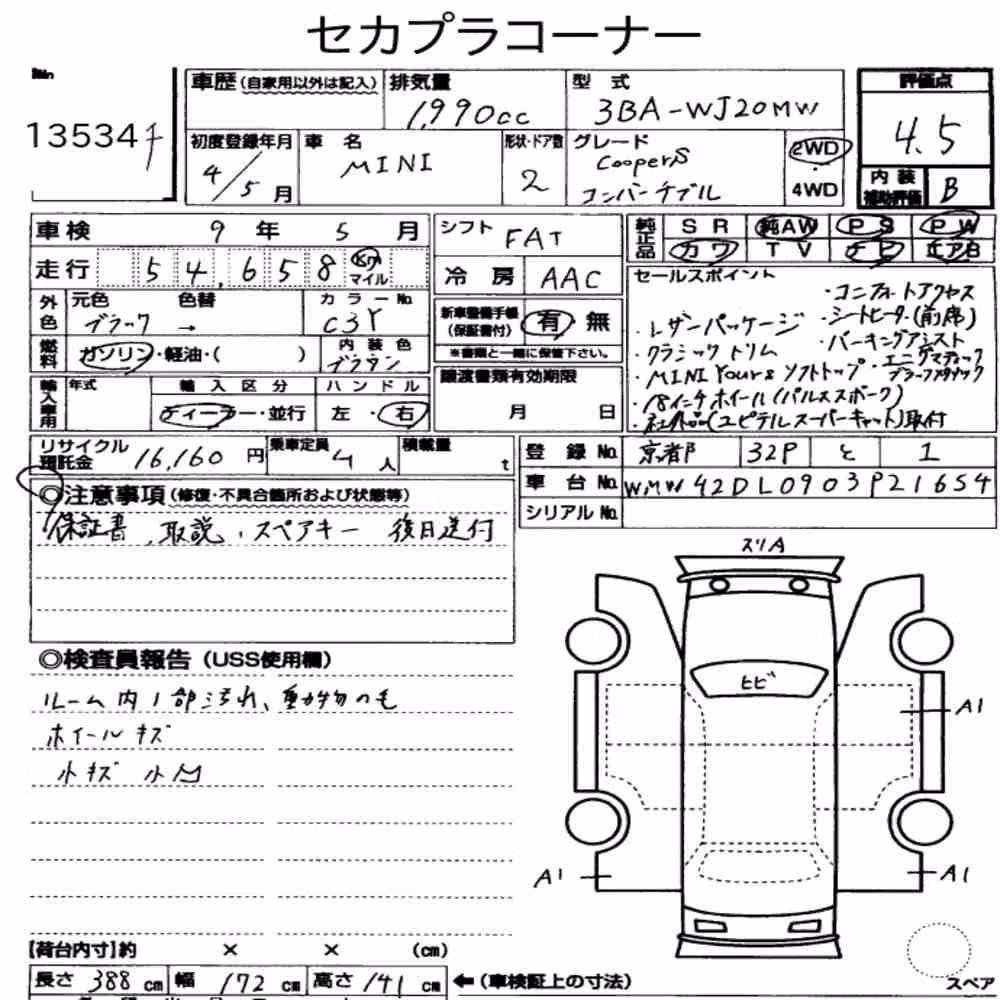 セカプラコーナー
車歴(自家用以外は記入) 排気量 型式 評価点
1,990cc 3BA-WJ20MW 4.5
13534
初度登録年月 車名 形状・ドア数 グレード 2WD
4/5月 MINI 2 CooperS コンバーチブル 4WD
内装補助評価 B
車検 9年 5月 シフト FAT 純正品 SR 純AW PS PW
カワ TV ナビ エアB
走行 54,658 Km マイル 冷房 AAC
セールスポイント
外色 元色 色替 カラーNo.
ブラック → C3Y
新車整備手帳(保証書付) 有・無
※書類と一緒に保管下さい。
燃料 ガソリン・軽油・( ) 内装色 ブラウン
・コンフォートアクセス
・レザーパッケージ ・シートヒーター(前席)
・クラシックトリム ・パーキングアシスト
・MINI Yours ソフトトップ ・エニグマティックブラック
・18インチホイール(パルススポーク)
・社外品(ユピテルスーパーキャット)取付
輸入車用 年式 輸入区分 ハンドル 譲渡書類有効期限
ディーラー・並行 左・右 月 日
リサイクル預託金 16,160円 乗車定員 4人 積載量 t
登録No. 京都 32P と 1
車台No. WMW42DL0903P21654
シリアルNo.
◎注意事項(修復・不具合箇所および状態等)
保証書、取説、スペアキー 後日送付
スリA
◎検査員報告(USS使用欄)
ルーム内1部汚れ、動物の毛
ヒビ
A1
ホイールキズ
小キズ 小凹
A1 A1
【荷台内寸】約 × × (cm)
長さ 388 cm 幅 172 cm 高さ 141 cm ←(車検証上の寸法) スペア